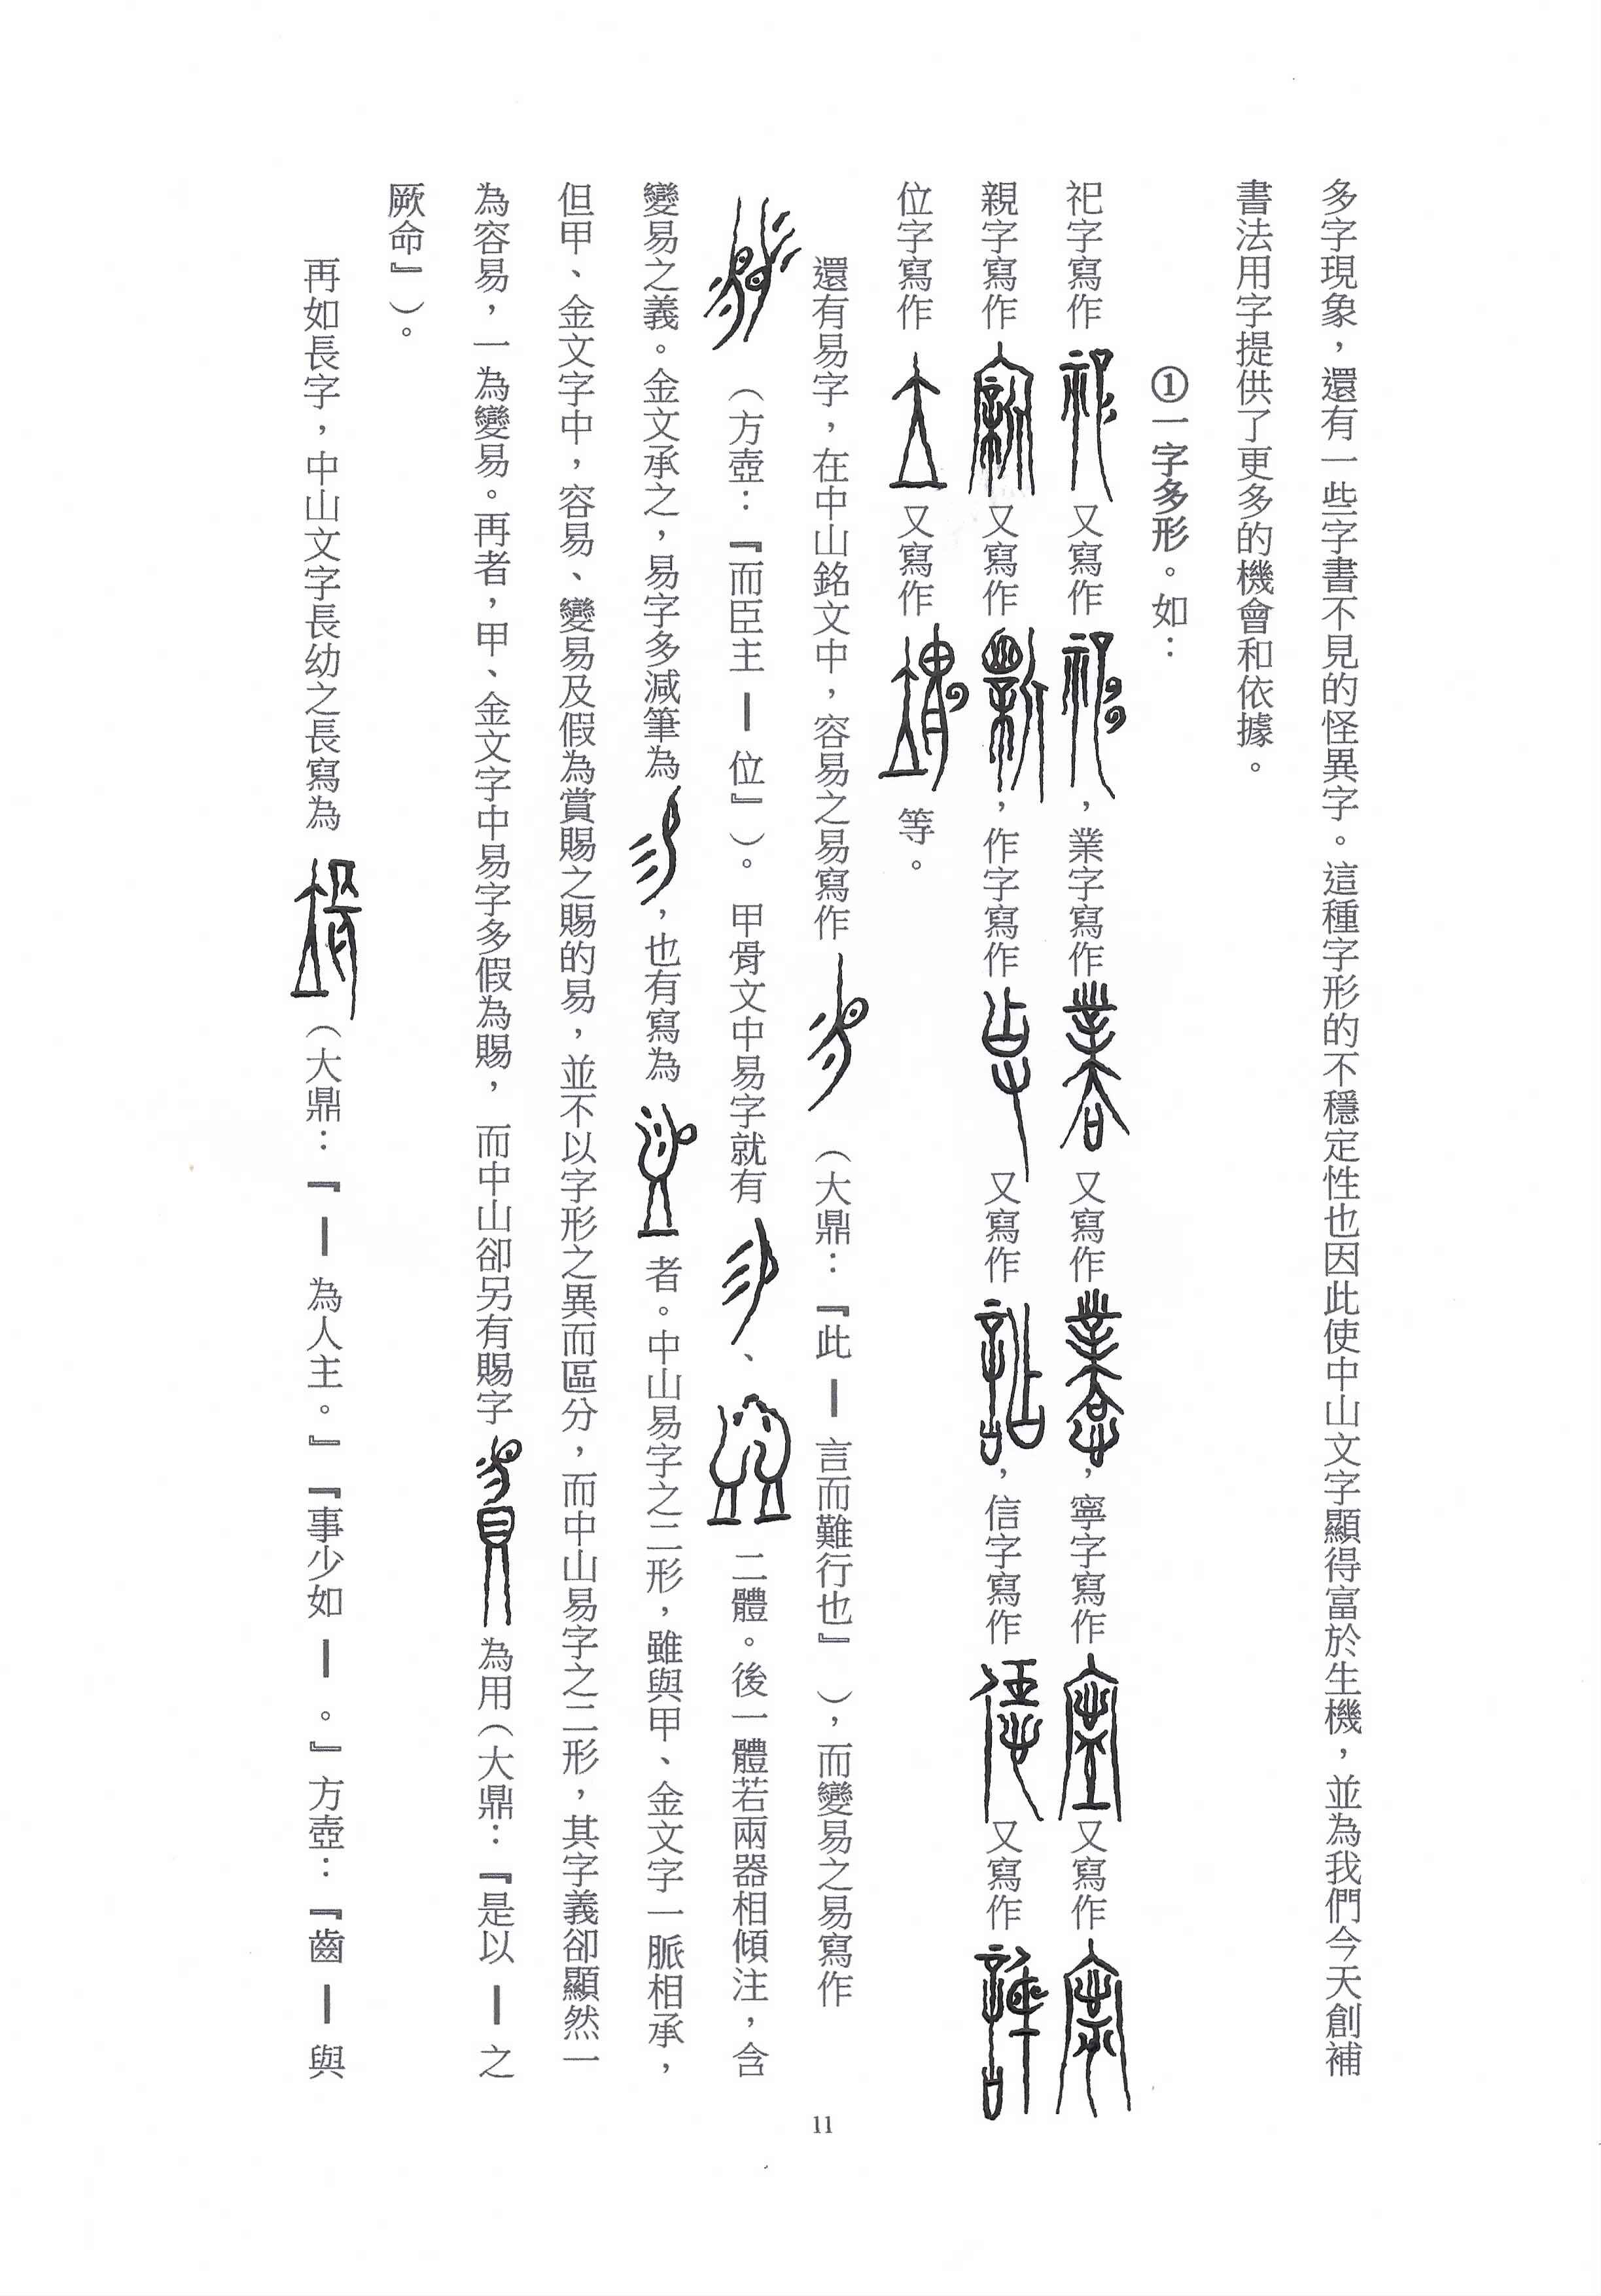 多字現象，還有一些字書不見的怪異字。這種字形的不穩定性也因此使中山文字顯得富於生機，並為我們今天創補
書法用字提供了更多的機會和依據。
①一字多形。如：
祀字寫作 又寫作 ，業字寫作 又寫作 ，寧字寫作 又寫作
親字寫作 又寫作 ，作字寫作 又寫作 ，信字寫作 又寫作
位字寫作 又寫作 等。
還有易字，在中山銘文中，容易之易寫作 （大鼎：『此 — 言而難行也』），而變易之易寫作
（方壺：『而臣主 — 位』）。甲骨文中易字就有 、 二體。後一體若兩器相傾注，含
變易之義。金文承之，易字多減筆為 ，也有寫為 者。中山易字之二形，雖與甲、金文字一脈相承，
但甲、金文字中，容易、變易及假為賞賜之賜的易，並不以字形之異而區分，而中山易字之二形，其字義卻顯然一
為容易，一為變易。再者，甲、金文字中易字多假為賜，而中山卻另有賜字 為用（大鼎：『是以 — 之
厥命』）。
再如長字，中山文字長幼之長寫為 （大鼎：『 — 為人主。』『事少如 — 。』方壺：『齒 — 與
11